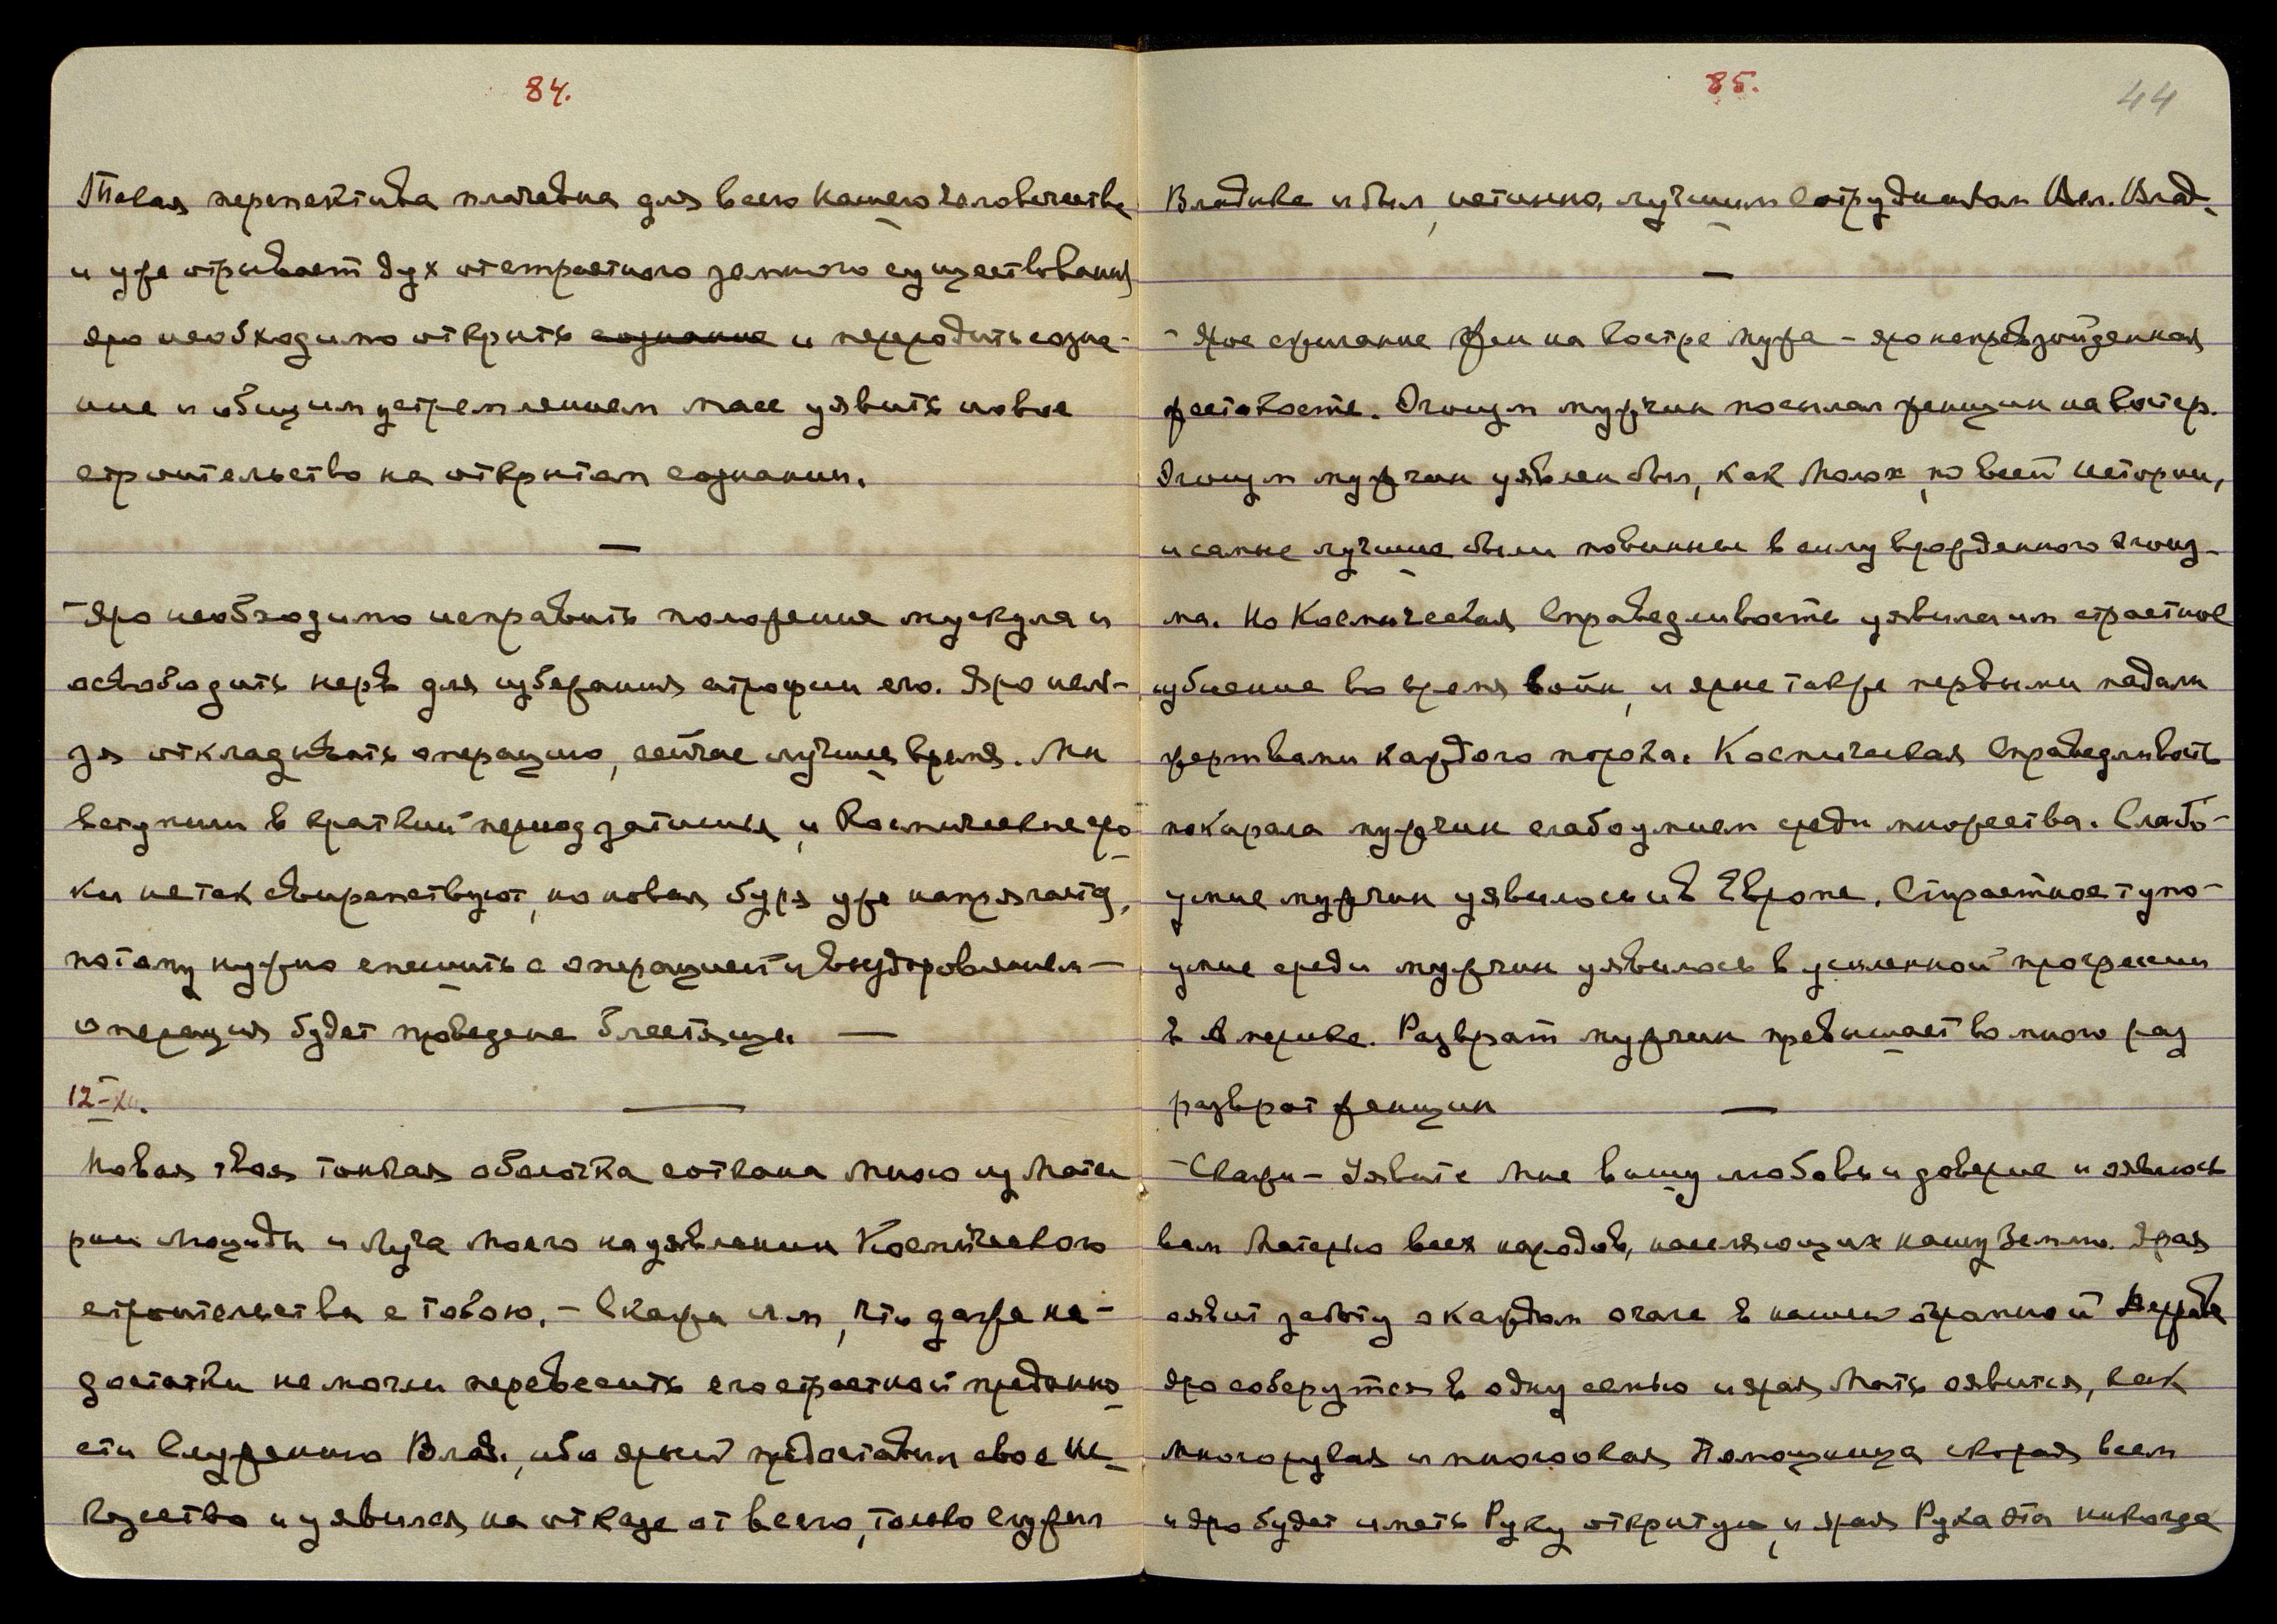 84.
Такая перспектива плачевна для всего нашего человечества
и уже отрывает дух от страстного земного существования
яро необходимо открыть сознание и переродить созна-
ние и общим устремлением масс уявить новое
строительство на открытом сознании.
—
– Яро необходимо исправить положение мускула и
освободить нерв для избежания атрофии его. Яро нель-
зя откладывать операцию, сейчас лучшее время. Мы
вступили в краткий период затишья, и Космические сро-
ки не так свирепствуют, но новая буря уже напрягается,
потому нужно спешить с операцией и выздоровлением –
операция будет проведена блестяще. —
12–XII.
Новая твоя тонкая оболочка соткана Мною из Мате
рии Люциды и Луча Моего на уявлении Космического
строительства с тобою. – Скажи им, что даже не-
достатки не могли перевесить его страстной преданно
сти Служению Влад., ибо ярый предоставил свое Ис-
кусство и уявился на отказе от всего, только служил
85.
44
Владыке и был, истинно, лучшим сотрудником Вел. Влад.
—
– Ярое сжигание жен на костре мужа – яро непревзойденная
жестокость. Эгоизм мужчин посылал женщин на костер.
Эгоизм мужчин уявлен был, как Молох, по всей истории,
и самые лучшие были повинны в силу врожденного эгоиз-
ма. Но Космическая Справедливость уявила им страстное
избиение во время войн, и ярые также первыми падали
жертвами каждого порока. Космическая Справедливость
покарала мужчин слабоумием среди множества. Слабо-
умие мужчин уявилось и в Европе. Страстное тупо-
умие среди мужчин уявилось в усиленной прогрессии
в Америке. Разврат мужчин превышает во много раз
разврат женщин —
– Скажи – Уявите Мне вашу любовь и доверие и оявлюсь
вам Матерью всех народов, населяющих нашу Землю. Ярая
оявит заботу о каждом очаге в нашей огромной Державе
Яро соберутся в одну семью и ярая Мать оявится, как
многорукая и многоокая Помощница скорая всем
и яро будет иметь Руку открытую, и ярая Рука эта никогда